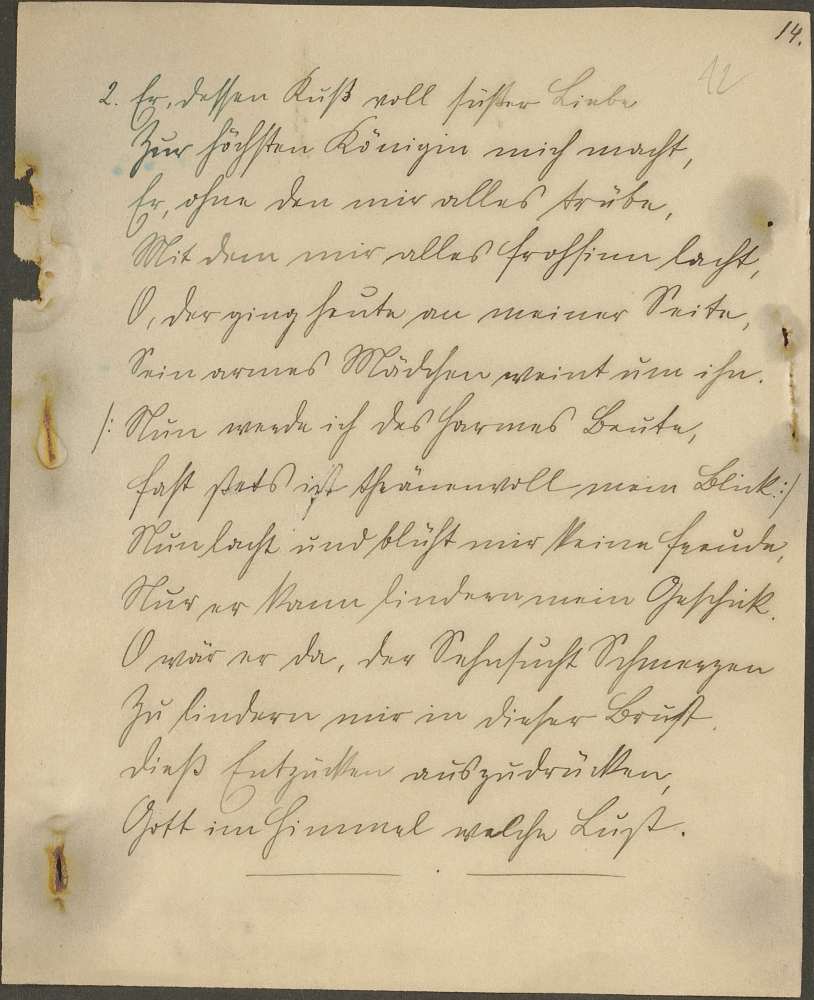 14.
12
2. Er, dessen Kuß voll süßer Liebe
Zur höchsten Königin mich macht,
Er, ohne den mir alles trübe,
Mit dem mir alles Frohsinn lacht,
O, der ging heute an meiner Seite,
Sein armes Mädchen weint um ihn.
/: Nun werde ich des Harmes Beute,
Fast stets ist thränenvoll mein Blick :/
Nun lacht und blüht mir keine Freude,
Nur er kann lindern mein Geschick.
O wär er da, der Sehnsucht Schmerzen
Zu lindern mir in dieser Brust.
Dieß Entzücken auszudrücken,
Gott im Himmel welche Lust.